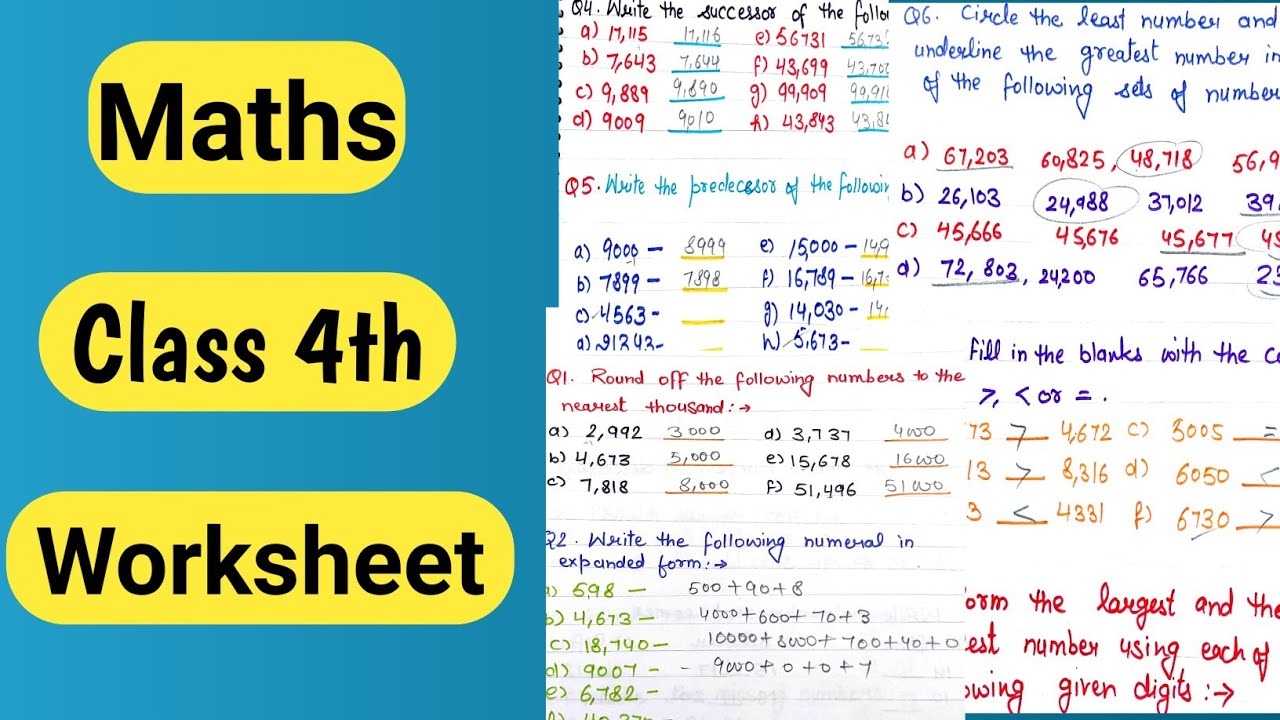 Maths
Class 4th
Worksheet
Q4. Write the successor of the follo
a) 17,115 17,116 e) 56731 56,73
b) 7,643 7,644 f) 43,699 43,700
c) 9,889 9,890 g) 99,909 99,91
d) 9009 9010 h) 43,843 43,84
Q5. Write the predecessor of the followin
a) 9000 – 8999 e) 15,000 – 14,9
b) 7899 – 7898 f) 16,789 – 16,7
c) 4563 – g) 14,030 – 14,
d) 21343 – h) 5,673 –
Q1. Round off the following numbers to the
nearest thousand:→
a) 2,992 3000 d) 3,737 4000
b) 4,673 5,000 e) 15,678 16000
c) 7,818 8,000 f) 51,496 51000
Q2. Write the following numeral in
expanded form:→
a) 598 – 500+90+8
b) 4,673 – 4000+600+70+3
c) 18,740 – 10000+8000+700+40+0
d) 9007 – - 9000+0+0+7
e) 6,782 –
Q6. Circle the least number and
underline the greatest number in
of the following sets of number
a) 67,203 60,825, 48,718 56,9
b) 26,103 24,988 37,012 39,
c) 45,666 45,676 45,677 45
d) 72,803, 24,200 65,766 23
Fill in the blanks with the co
>, < or = .
73 > 4,672 c) 3005 =
13 > 8,316 d) 6050 <
3 < 4331 f) 6730 >
orm the largest and the
est number using each of
owing given digits:→